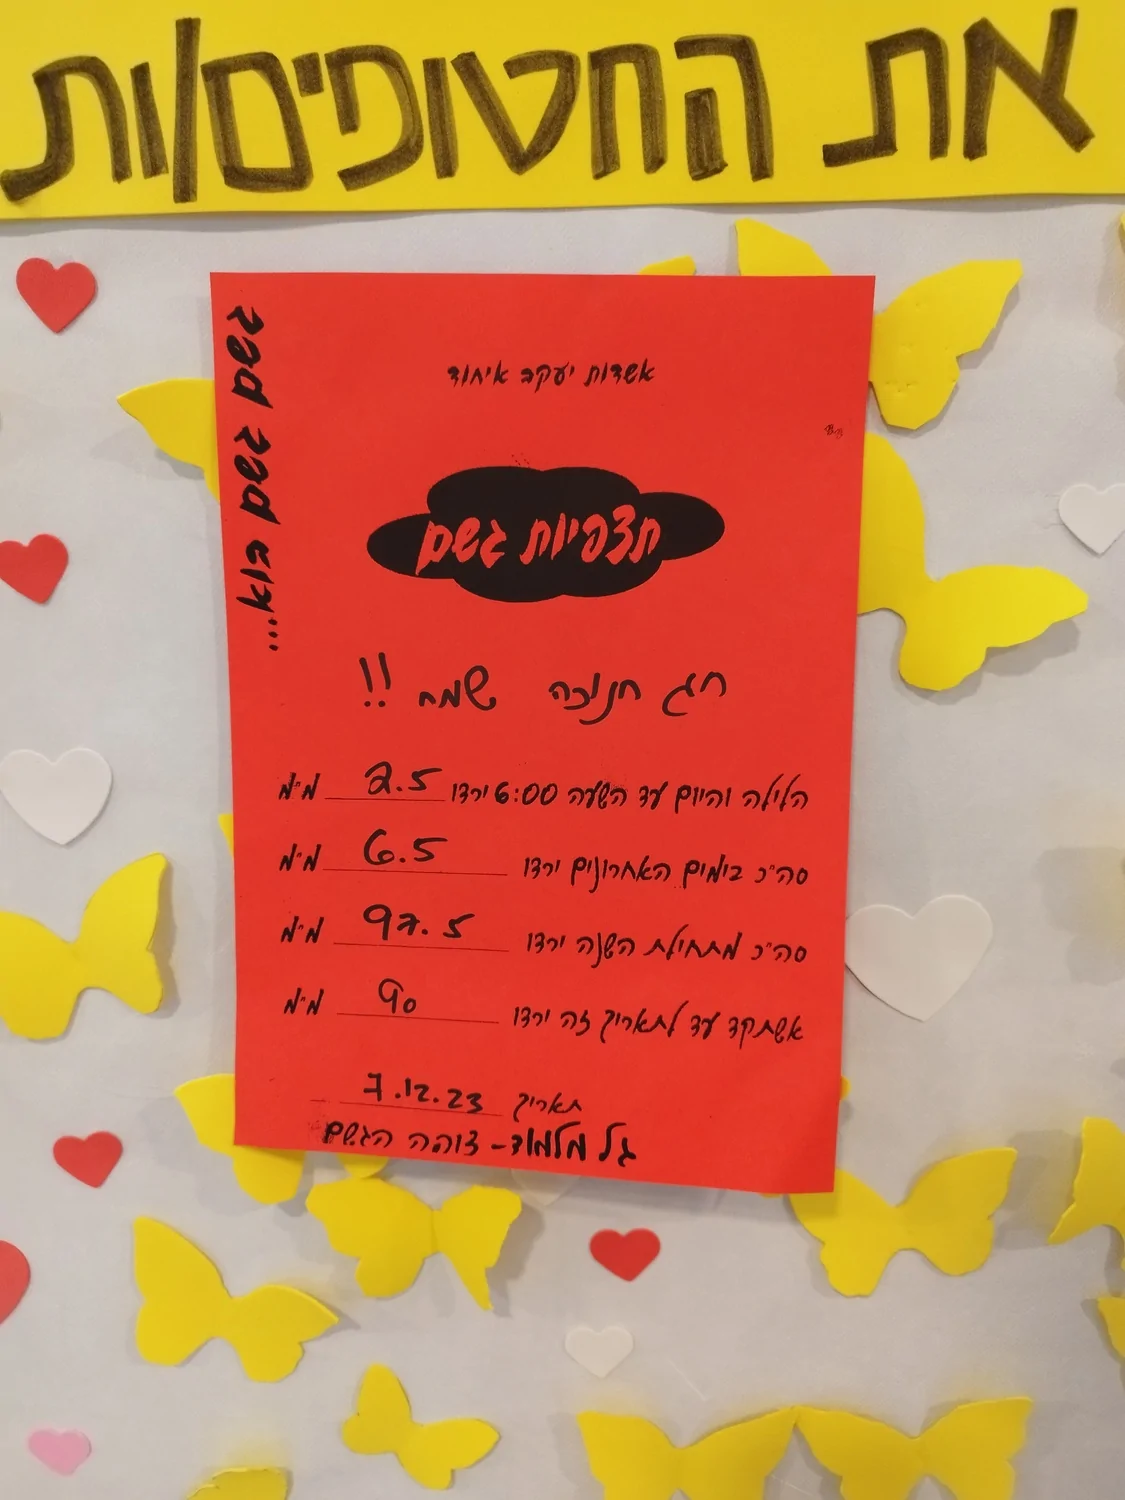 את החטופים/ות
גשם גשם בוא...
אשדות יעקב איחוד
תצפיות גשם
חג חנוכה שמח !!
הלילה והיום עד השעה 6:00 ירדו 2.5 מ"מ
סה"כ בימים האחרונים ירדו 6.5 מ"מ
סה"כ מתחילת השנה ירדו 97.5 מ"מ
אשתקד עד לתאריך זה ירדו 90 מ"מ
תאריך 7.12.23
גל מלמוד - צופה הגשם